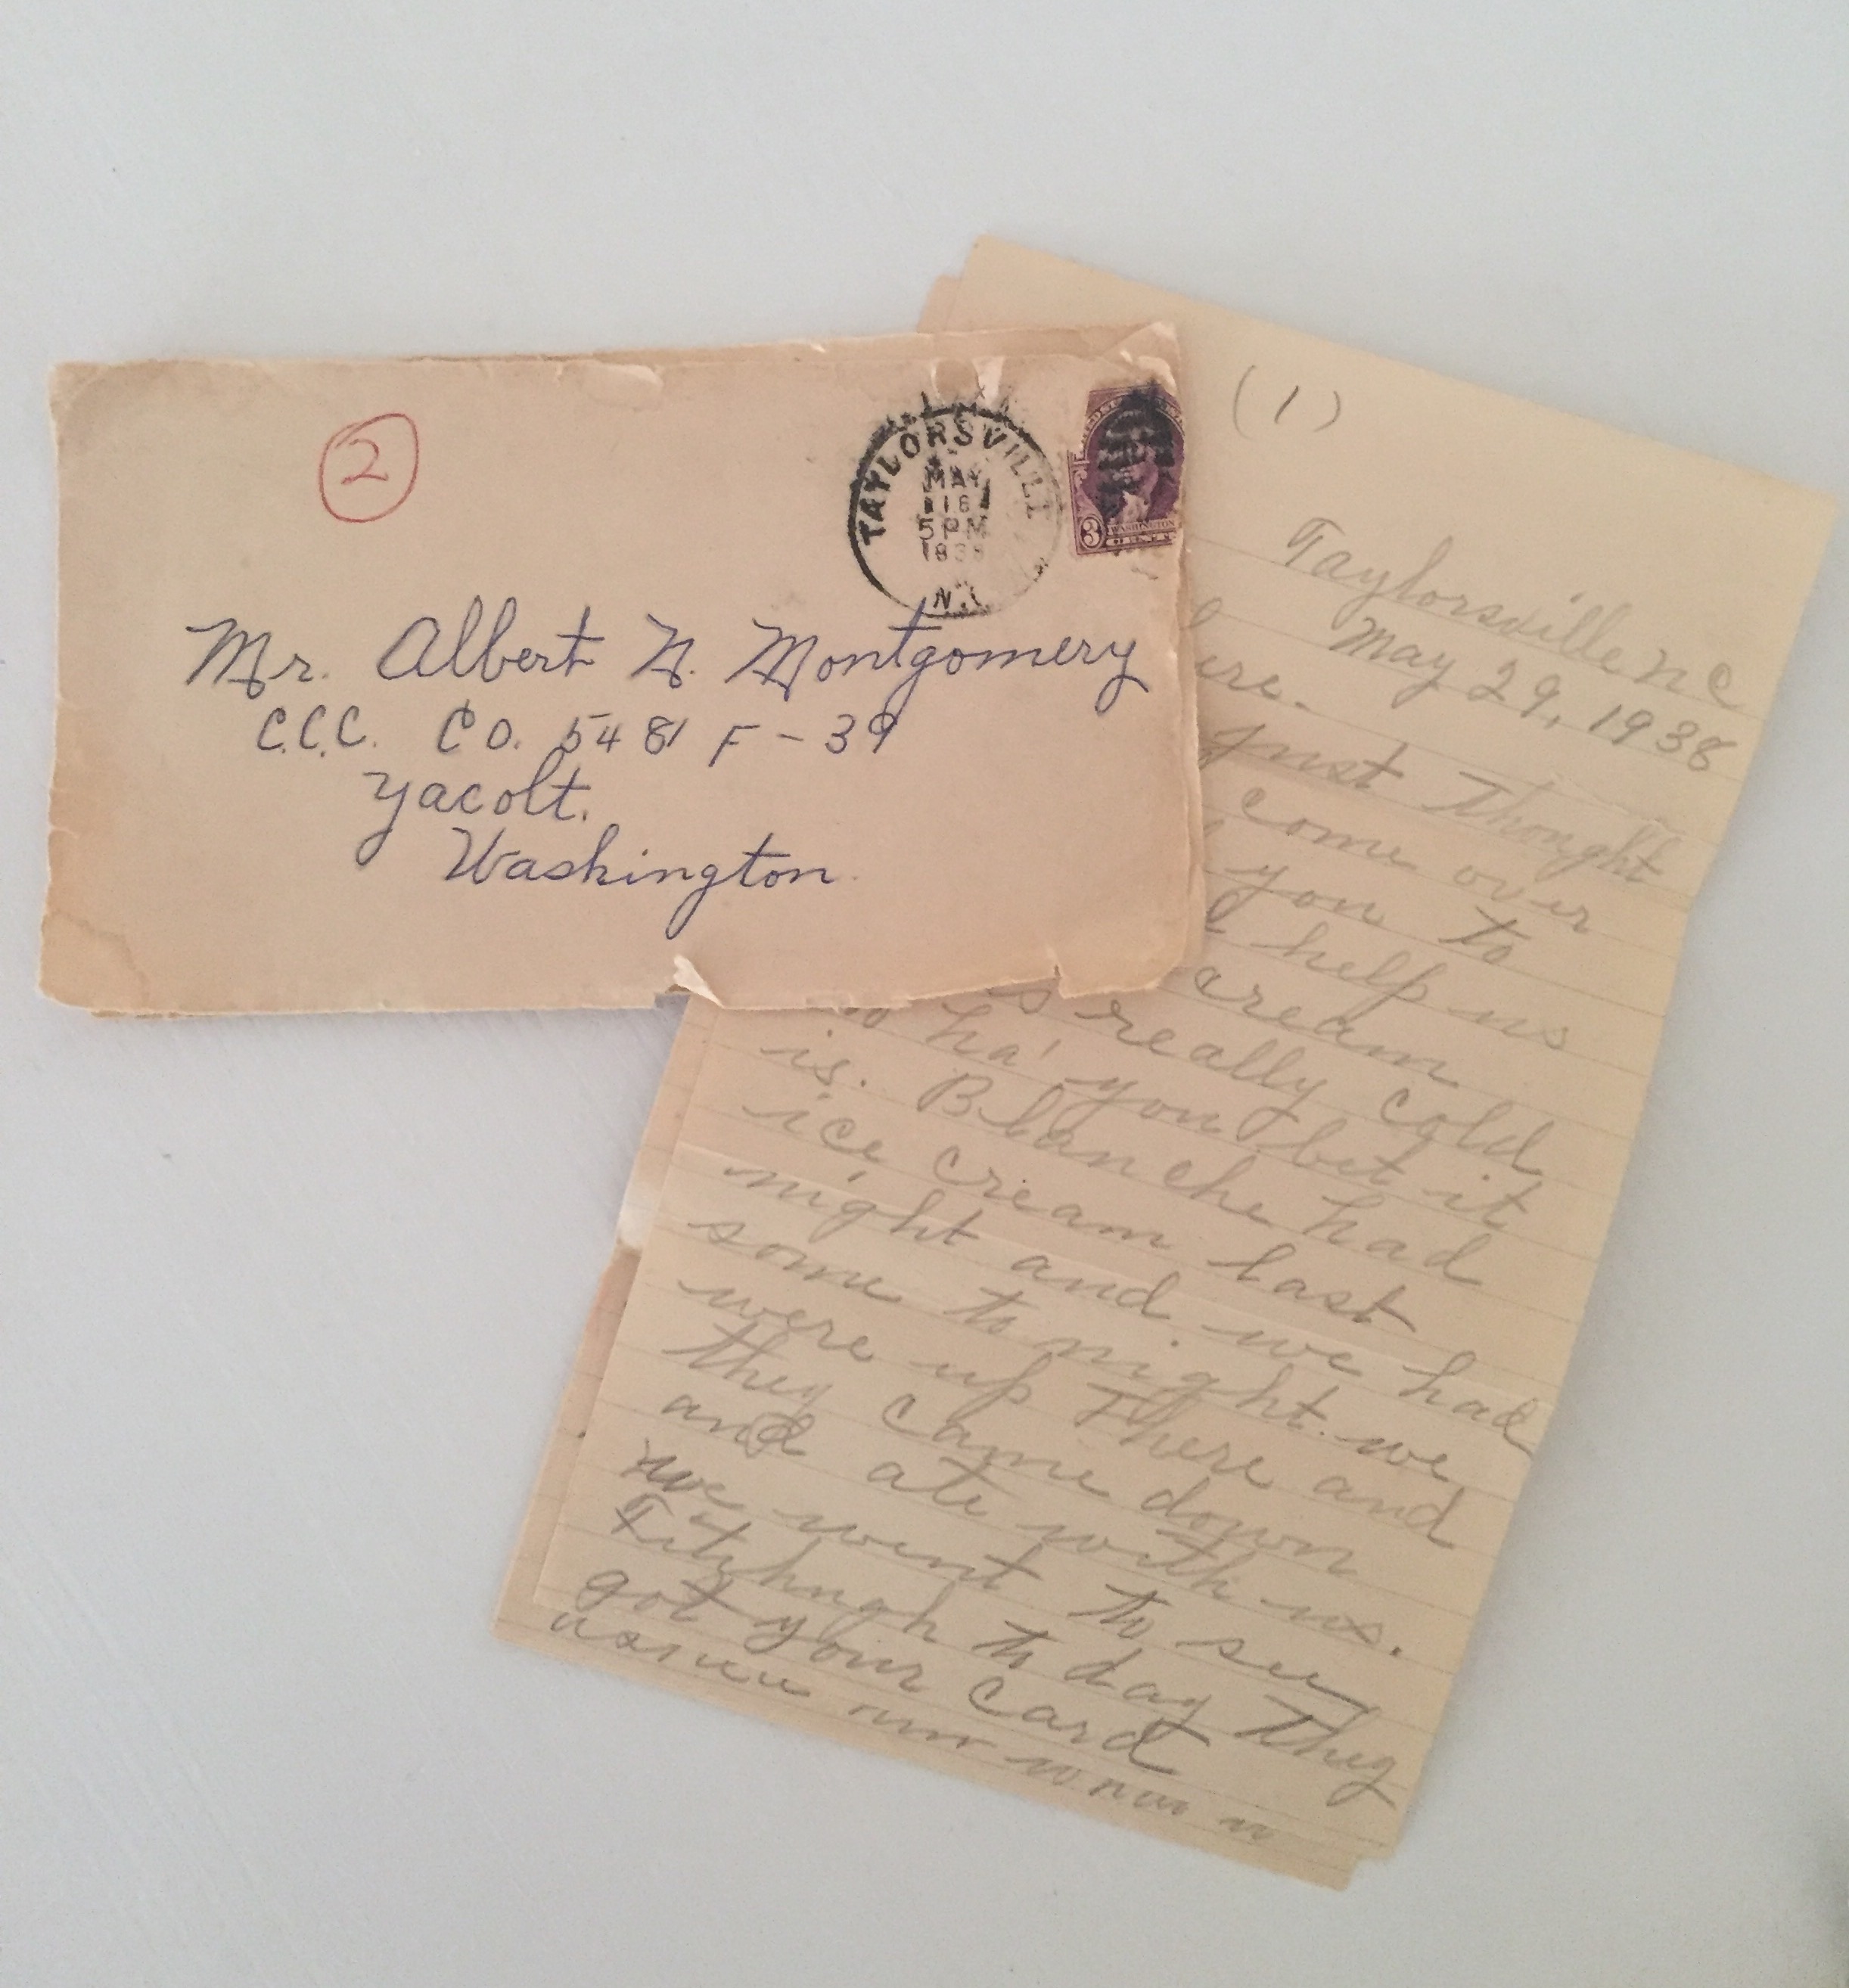 2
TAYLORSVILLE
MAY
16
5 PM
N.C
3
WASHINGTON
Mr. Albert N. Montgomery
C.C.C. CO. 5481 F-39
Yacolt.
Washington.
(1)
Taylorsville NC
May 29, 1938
ere.
just thought
come over
you to
help us
cream
s really cold
ha' you bet it
is. Blanche had
ice cream last
night and we had
some to night. we
were up There and
they came down
and ate with us.
we went to see
Fitzhugh to day They
got your card